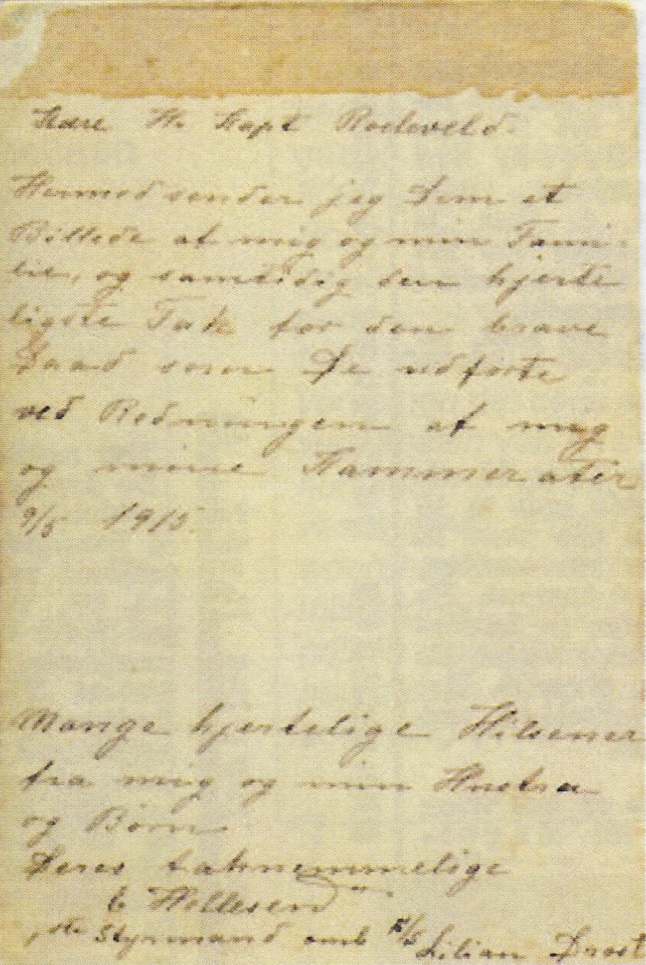 Kære Hr Kapt Rodeveld.
Hermed sender jeg Dem et
Billede af mig og min Fami-
lie, og samtidig den hjerte
ligste Tak for den brave
Daad som De udførte
ved Redningen af mig
og mine Kammerater
9/5 1915.
Mange hjertelige Hilsener
fra mig og min Hustru
og Børn
Deres taknemmelige
E Hellesen
1ste Styrmand omb S/S Lilian Drost